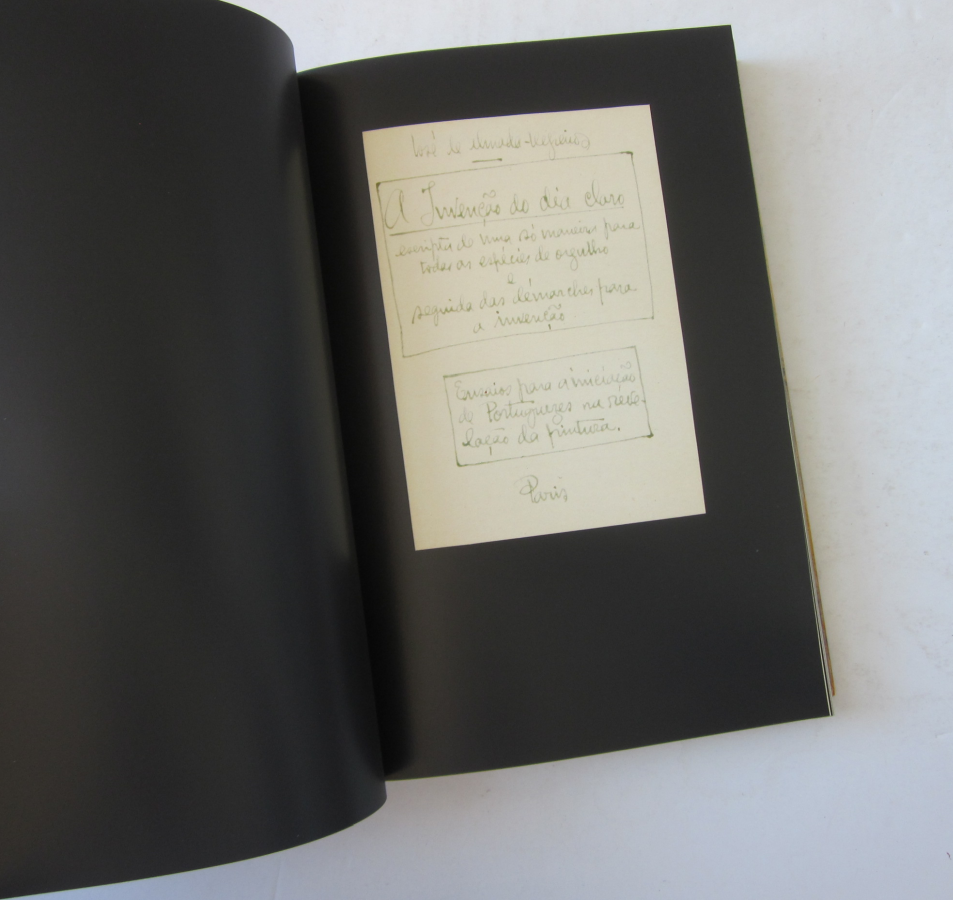 José de Almada-Negreiros
A Invenção do dia claro
escripta de uma só maneira para
todas as espécies de orgulho
e
seguida das démarches para
a invenção.
Ensaios para a iniciação
de Portuguezes na reve-
lação da pintura.
Paris